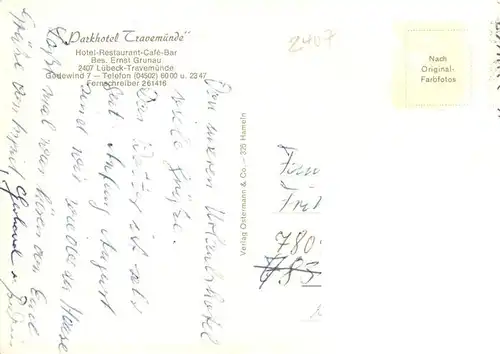 "Parkhotel Travemünde"
Hotel-Restaurant-Café-Bar
Bes. Ernst Grunau
2407 Lübeck-Travemünde
Godewind 7 – Telefon (04502) 6000 u. 2347
Fernschreiber 261416
2407
Nach
Original-
Farbfotos
Verlag Ostermann & Co. – 325 Hameln
Aus unserem Urlaubshotel
viele Grüße.
Das Wetter ist sehr
gut. Anfang August
sind wir wieder zu Hause
Laßt mal was hören von Euch
Grüße
Gerhard u.
Fam
780